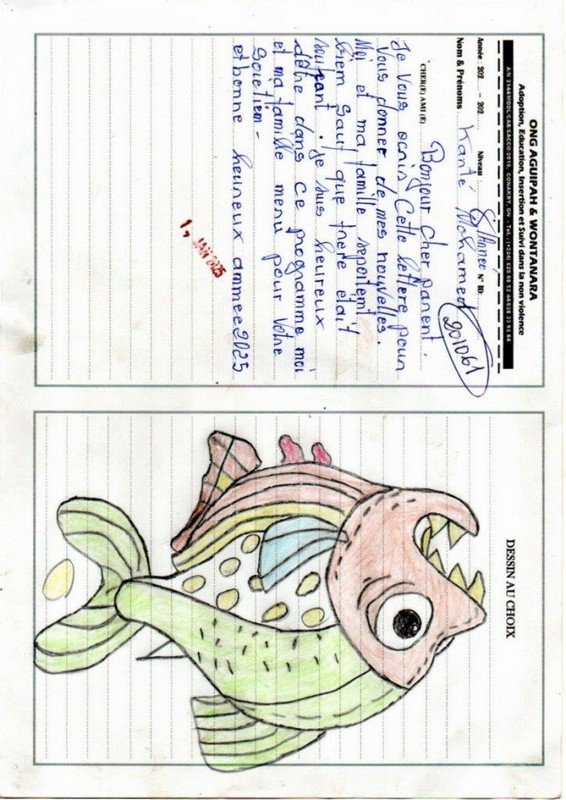 ONG AGUIPAH & WONTANARA
Adoption, Education, Insertion et Suivi dans la non violence
Année : 202 - 202 Niveau : 8ème Année N° ID:
Nom & Prénoms Kanté Mohamed 201061
CHER(E) AMI (E)
Bonjour cher parent.
Je vous ecris cette lettere pour
Vous donner de mes nouvelles.
Moi et ma famille se portent
biem sauf que frere etait
souffrant. je suis heureux
detre dans ce programme moi
et ma famille menu pour votre
Soutiem -
et bonne heureux ammee 2025
JAN 2025
DESSIN AU CHOIX